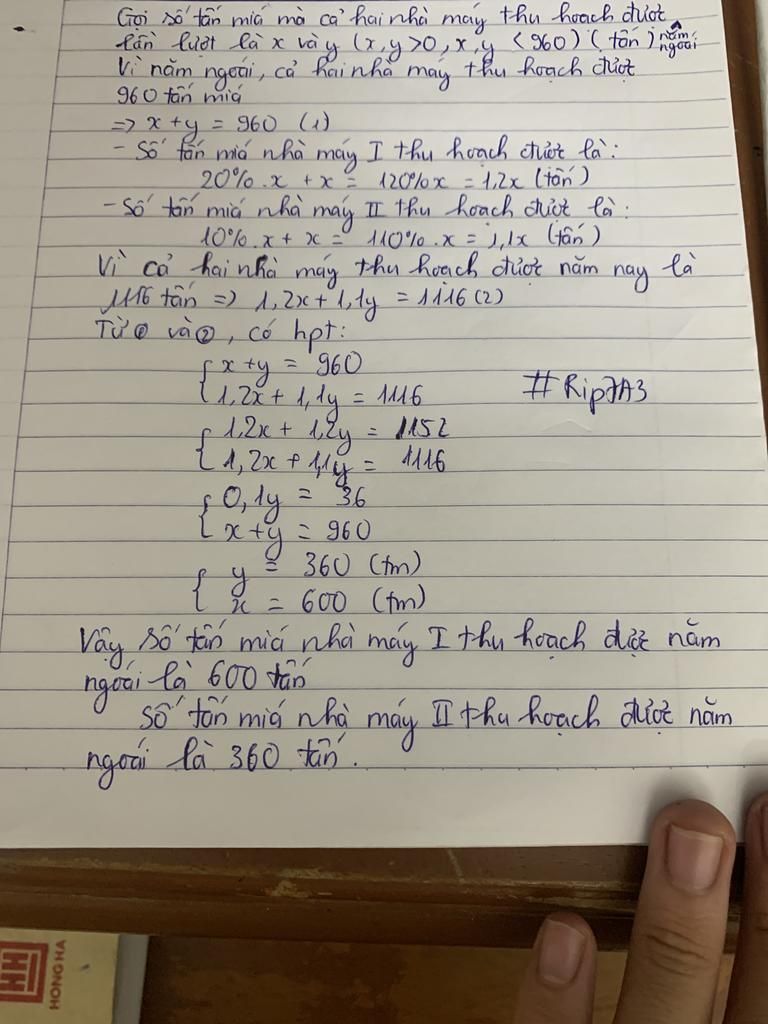 Gọi số tấn miá mà cả hai nhà máy thu hoạch được
lần lượt là x và y (x,y >0, x,y < 960) (tấn) năm ngoái
Vì năm ngoái, cả hai nhà máy thu hoạch được
960 tấn miá
=> x+y = 960 (1)
- Số tấn miá nhà máy I thu hoạch được là:
20%.x + x = 120%x = 1,2x (tấn)
- Số tấn miá nhà máy II thu hoạch được là:
10%.x + x = 110%.x = 1,1x (tấn)
Vì cả hai nhà máy thu hoạch được năm nay là
1116 tấn => 1,2x + 1,1y = 1116 (2)
Từ ① và ②, có hpt:
{ x+y = 960
1,2x + 1,1y = 1116
#Rip7A3
{ 1,2x + 1,2y = 1152
1,2x + 1,1y = 1116
{ 0,1y = 36
x+y = 960
{ y = 360 (tm)
x = 600 (tm)
Vậy số tấn miá nhà máy I thu hoạch được năm
ngoái là 600 tấn
Số tấn miá nhà máy II thu hoạch được năm
ngoái là 360 tấn.
HH
HONG HA